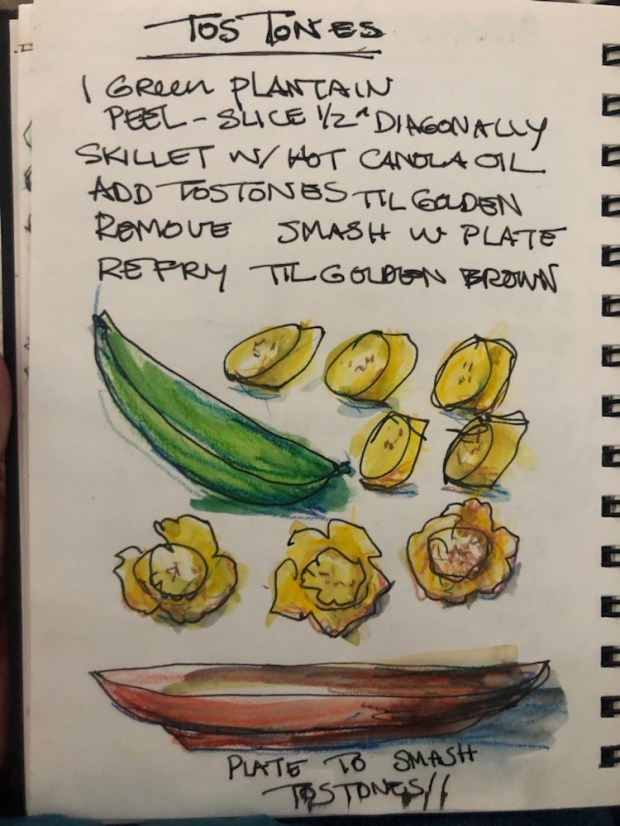 TOSTONES
1 GREEN PLANTAIN
PEEL - SLICE 1/2" DIAGONALLY
SKILLET W/ HOT CANOLA OIL
ADD TOSTONES TIL GOLDEN
REMOVE SMASH W PLATE
REFRY TIL GOLDEN BROWN
PLATE TO SMASH
TOSTONES//